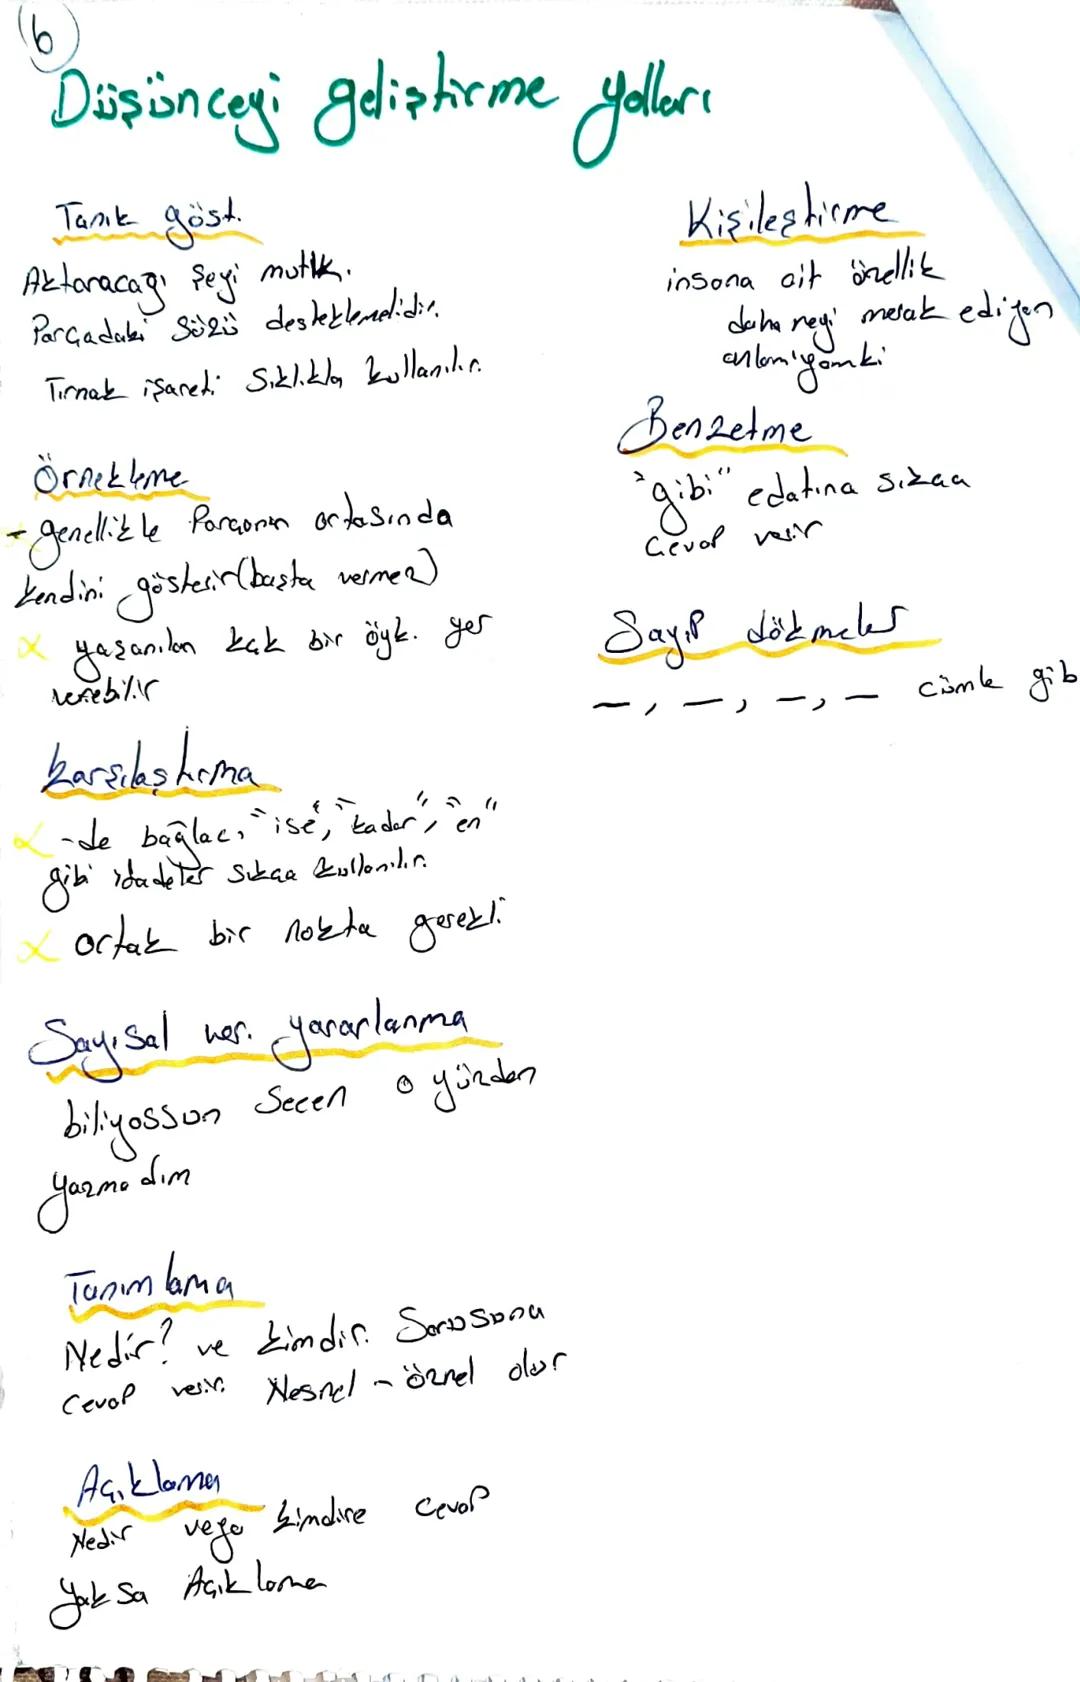 6
Düşünceyi geliştirme yolları
Tanık göst.
Aktaracağı şeyi mutlk.
Parçadaki sözü desteklemelidir.
Tırnak işareti sıklıkla kullanılır.
Örnekleme
- genellikle Parçanın ortasında
kendini gösterir (başta vermez)
yaşanılan bir öyk. yer
verebilir
karşılaştırma
-de bağlacı, "ise", "kadar", "en"
gibi sıkça kullanılır.
ortak bir nokta gerekli
Sayısal ver. yararlanma
biliyossun o yüzden
yazmadım
Tanımlama
Nedir? ve kimdir. Sorusuna
cevap verir. Nesnel - öznel olur
Açıklama
Nedir veya kimdire cevap
yoksa Açıklama
Kişileştirme
insana ait özellik
daha neyi merak ediyon
anlamıyomki
Benzetme
"gibi" edatına sıkça
cevap verir
Sayıp dökmeler
—, —, —, — cümle gib